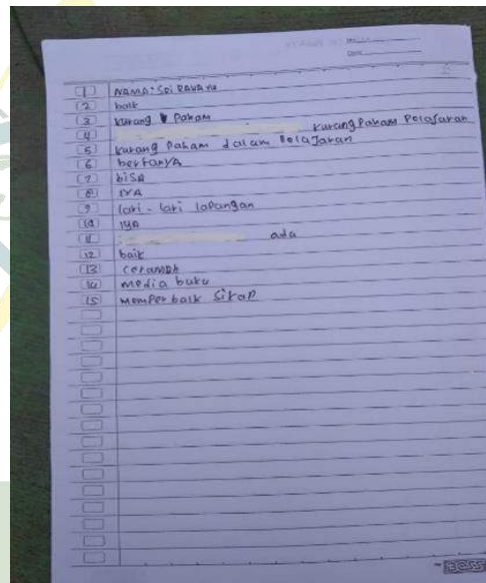 1 NAMA: Sri RAHAYU
2 baik
3 kurang Paham
4 kurang Paham Pelajaran
5 kurang Paham dalam Pelajaran
6 bertanya
7 biSA
8 IYA
9 lari - lari lapangan
10 IYA
11 ada
12 baik
13 ceramah
14 media buku
15 memperbaik Sikap